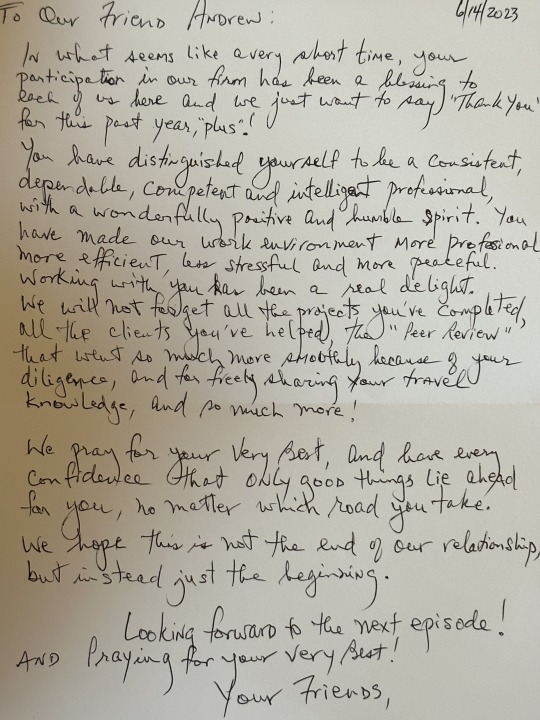 To Our Friend Andrew:
6/14/2023
In what seems like a very short time, your
participation in our firm has been a blessing to
each of us here and we just want to say, "Thank You"
for this past year, "plus"!
You have distinguished yourself to be a consistent,
dependable, competent and intelligent professional,
with a wonderfully positive and humble spirit. You
have made our work environment more professional
more efficient, less stressful and more peaceful.
Working with you has been a real delight.
We will not forget all the projects you've completed,
all the clients you've helped, the "Peer Review"
that went so much more smoothly because of your
diligence, and for freely sharing your travel
knowledge, and so much more!
We pray for your very best, and have every
confidence that ONLY good things lie ahead
for you, no matter which road you take.
We hope this is not the end of our relationship,
but instead just the beginning.
Looking forward to the next episode!
AND Praying for your very Best!
Your Friends,